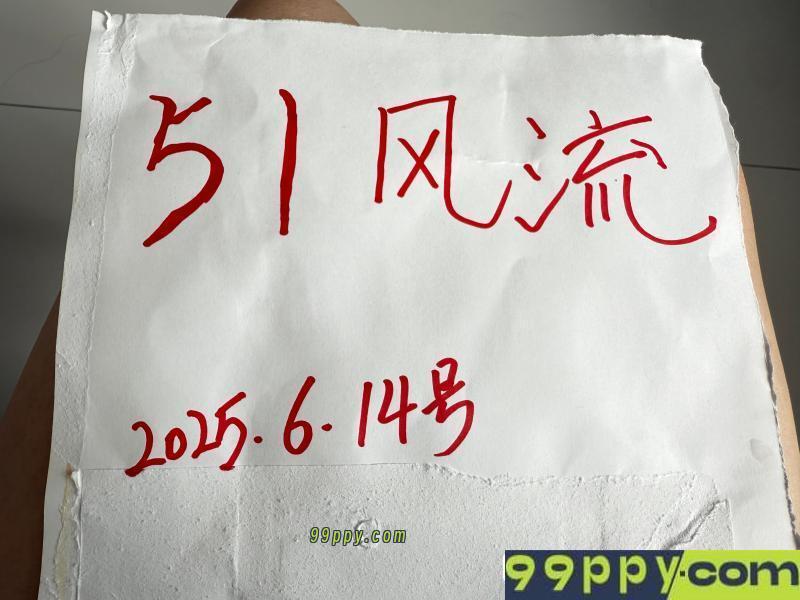 51风流
2025.6.14号
99ppy.com
99ppy.com